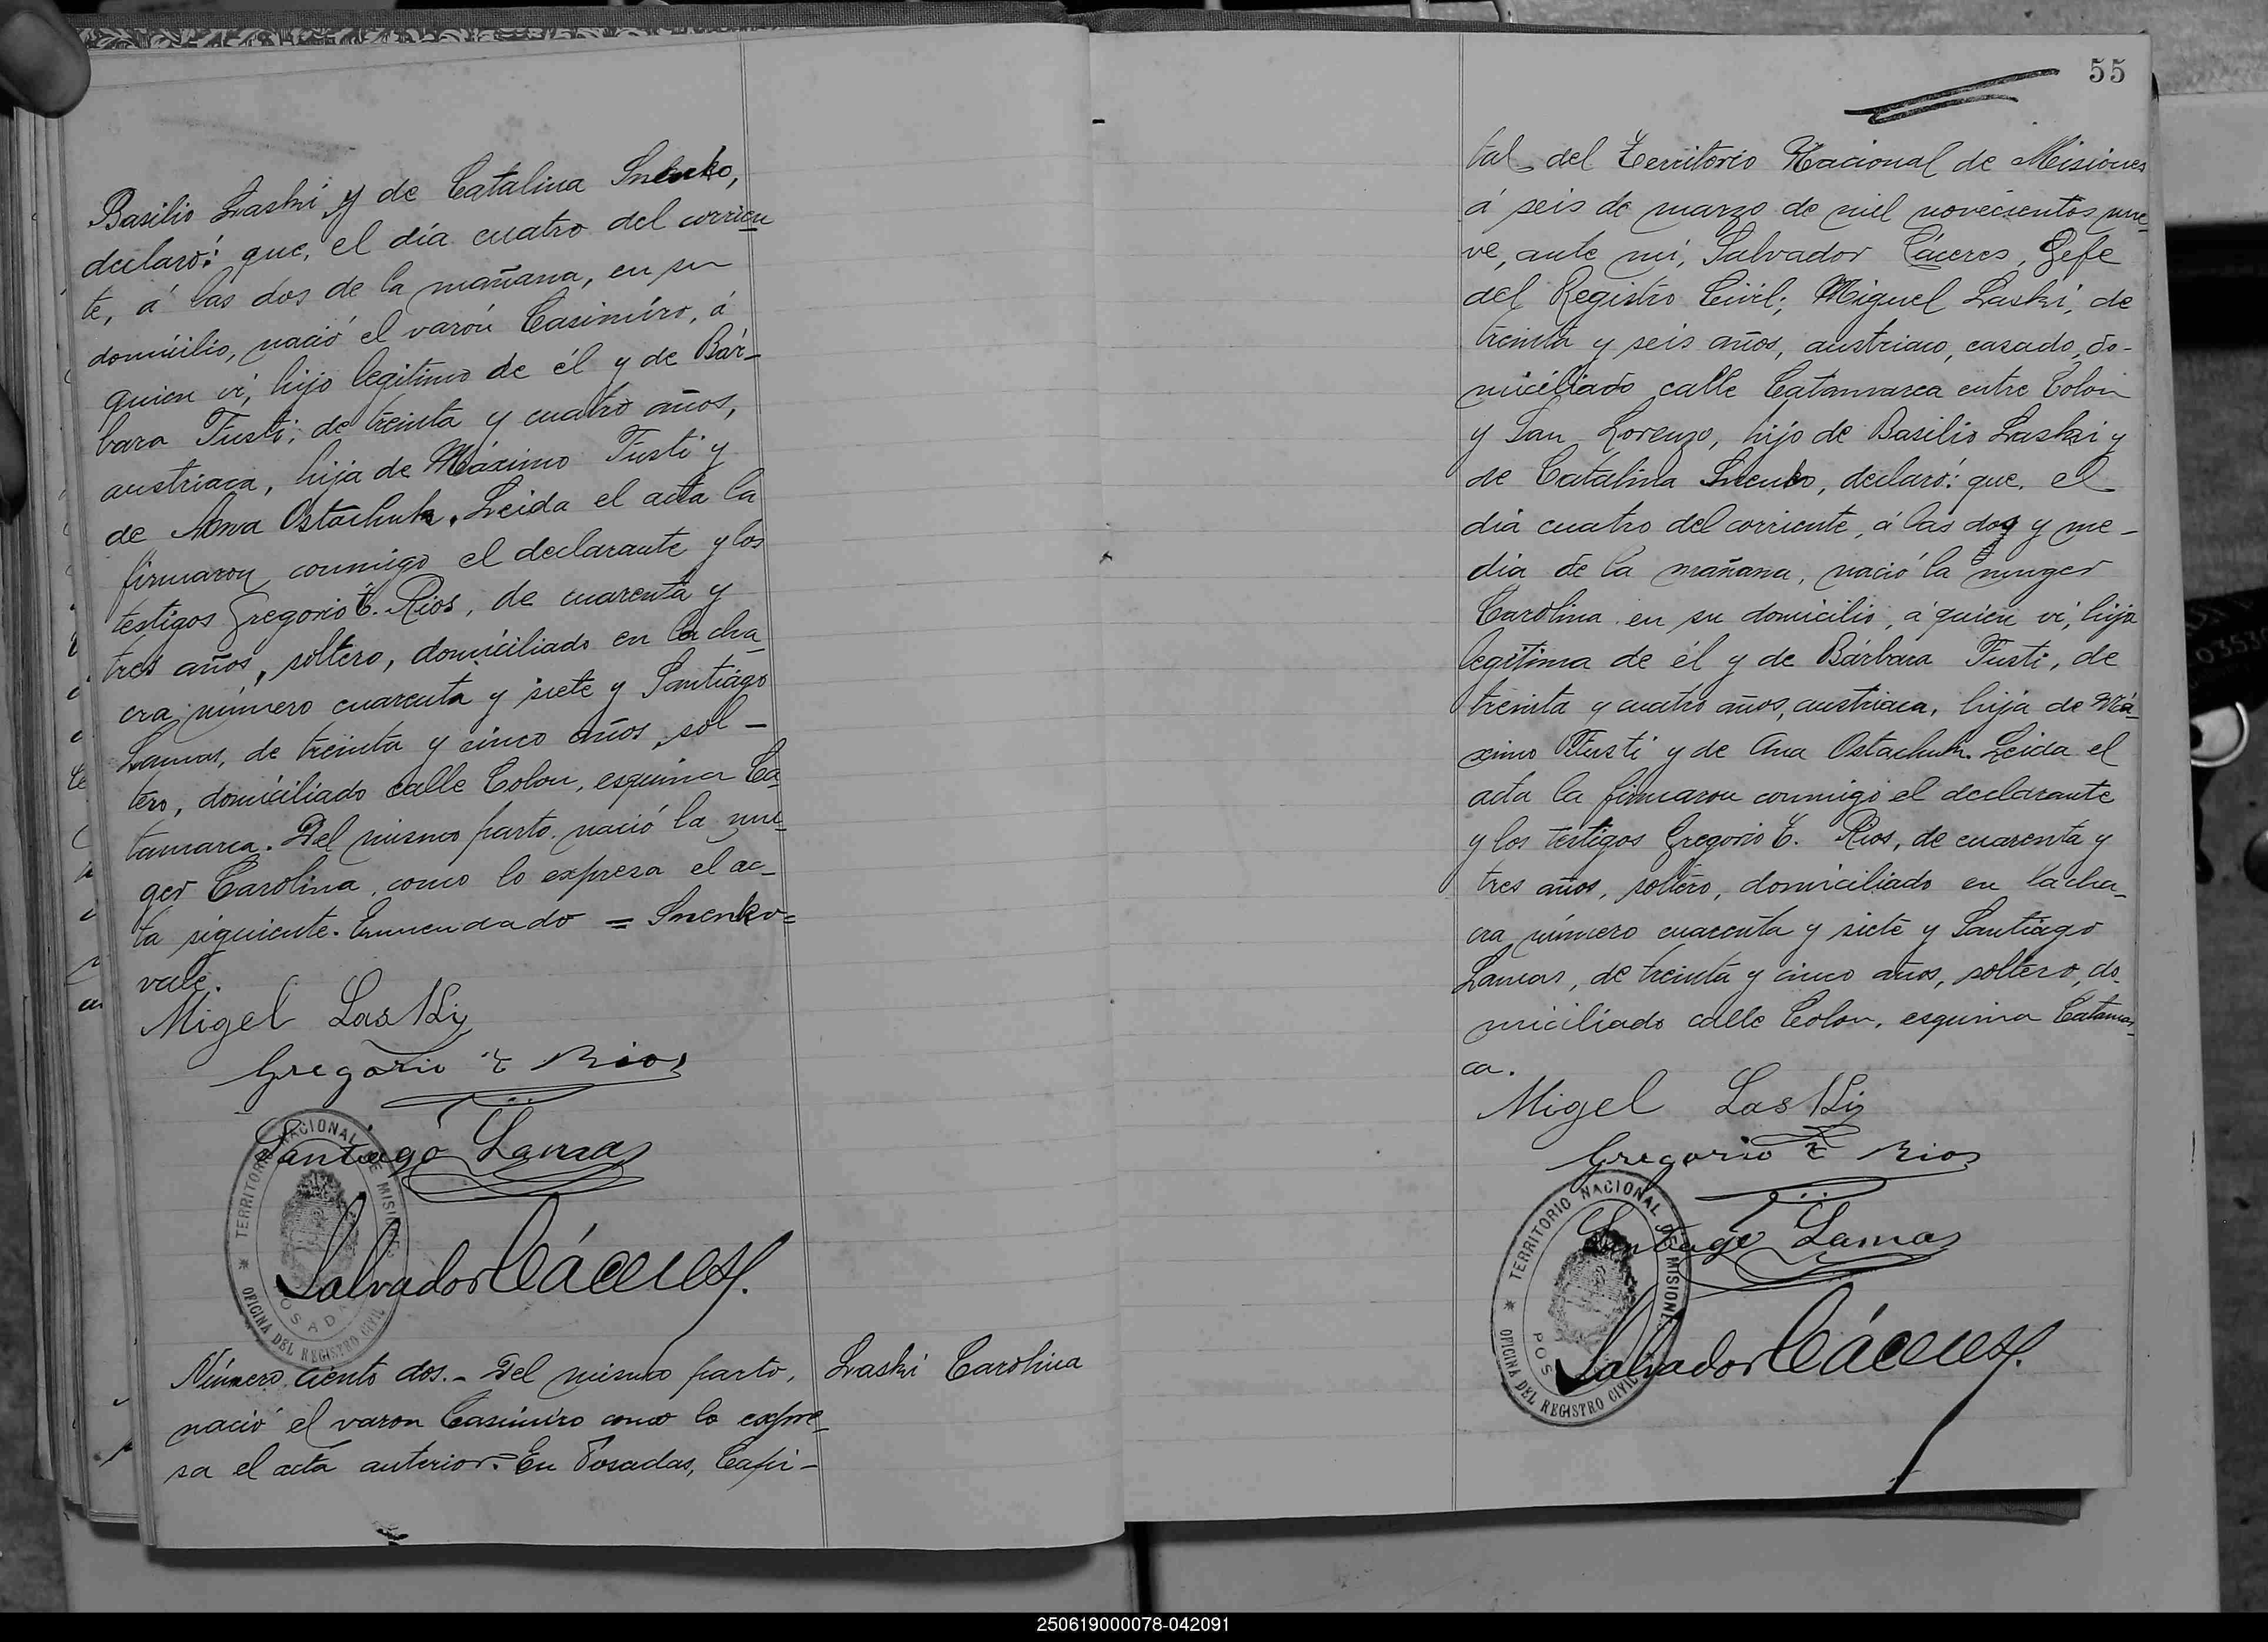 Basilio Laski y de Catalina Snenko,
declaró: que, el día cuatro del corrien
te, á las dos de la mañana, en su
domicilio, nació el varón Casimiro, á
quien ví, hijo legítimo de él y de Bár-
bara Fusti, de treinta y cuatro años,
austriaca, hija de Máximo Fusti y
de Anna Ostachuk. Leida el acta la
firmaron conmigo el declarante y los
testigos Gregorio E. Rios, de cuarenta y
tres años, soltero, domiciliado en la cha_
cra número cuarenta y siete y Santiago
Lamas, de treinta y cinco años, sol-
tero, domiciliado calle Colon, esquina Ca_
tamarca. Del mismo parto nació la mu_
ger Carolina, como lo expresa el ac_
ta siguiente. Enmendado = Snenko=
vale.
Migel Laski
Gregorio E Rios
Santiago Lamas
Salvador Cáceres.
TERRITORIO NACIONAL DE MISIONES
POSADAS
OFICINA DEL REGISTRO CIVIL
Número ciento dos.- Del mismo parto,
Laski Carolina
nació el varon Casimiro como lo expre_
sa el acta anterior. En Posadas, Capi-
55
tal del Territorio Nacional de Misiones
á seis de marzo de mil novecientos nue_
ve, ante mí, Salvador Cáceres, Gefe
del Registro Civil; Miguel Laski, de
treinta y seis años, austriaco, casado, do-
miciliado calle Catamarca entre Colon
y San Lorenzo, hijo de Basilio Laski y
de Catalina Snenko, declaró: que, el
día cuatro del corriente, á las dos y me-
dia de la mañana, nació la muger
Carolina en su domicilio, á quien ví, hija
legítima de él y de Bárbara Fusti, de
treinta y cuatro años, austriaca, hija de Má_
ximo Fusti y de Ana Ostachuk. Leida el
acta la firmaron conmigo el declarante
y los testigos Gregorio E. Rios, de cuarenta y
tres años, soltero, domiciliado en la cha_
cra número cuarenta y siete y Santiago
Lamas, de treinta y cinco años, soltero, do_
miciliado calle Colon, esquina Catamar_
ca.
Migel Laski
Gregorio E Rios
Santiago Lamas
Salvador Cáceres.
TERRITORIO NACIONAL DE MISIONES
POS
OFICINA DEL REGISTRO CIVIL
250619000078-042091